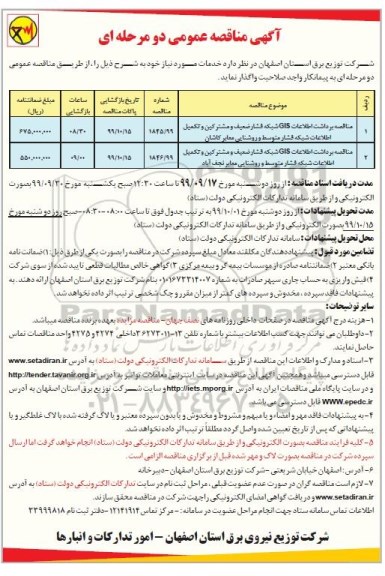 آگهی مناقصه عمومی دو مرحله ای
شرکت توزیع برق استان اصفهان در نظر دارد خدمات مورد نیاز خود به شرح ذیل را، از طریق مناقصه عمومی
دو مرحله ای به پیمانکار واجد صلاحیت واگذار نماید.
ردیف موضوع مناقصه شماره مناقصه تاریخ بازگشایی پاکات مناقصه ساعات بازگشایی مبلغ ضمانتنامه (ریال)
۱ مناقصه برداشت اطلاعات GIS شبکه فشار ضعیف و مشترکین و تکمیل اطلاعات شبکه فشار متوسط و روشنایی معابر کاشان ۱۸۴۵/۹۹ ۹۹/۱۰/۱۵ ۰۸/۳۰ ۶۷۵,۰۰۰,۰۰۰
۲ مناقصه برداشت اطلاعات GIS شبکه فشار ضعیف و مشترکین و تکمیل اطلاعات شبکه فشار متوسط و روشنایی معابر نجف آباد ۱۸۴۶/۹۹ ۹۹/۱۰/۱۵ ۰۹/۰۰ ۵۵۰,۰۰۰,۰۰۰
مدت دریافت اسناد مناقصه: از روز دوشنبه مورخ ۹۹/۰۹/۱۷ تا ساعت ۱۲:۳۰ صبح یکشنبه مورخ ۹۹/۰۹/۳۰ بصورت
الکترونیکی و از طریق سامانه تدارکات الکترونیکی دولت (ستاد)
مدت تحویل پیشنهادات: از روز دوشنبه مورخ ۹۹/۱۰/۰۱ به ترتیب جدول فوق تا ساعت ۰۸:۰۰-۰۸:۳۰ صبح روز دوشنبه مورخ
۹۹/۱۰/۱۵ بصورت الکترونیکی و از طریق سامانه تدارکات الکترونیکی دولت (ستاد)
محل تحویل پیشنهادات: سامانه تدارکات الکترونیکی دولت (ستاد)
تضامین مورد قبول: پیشنهاد دهندگان مکلفند معادل مبلغ سپرده شرکت در مناقصه را بصورت یکی از طرق ذیل: ۱) ضمانت نامه
بانکی معتبر ۲) ضمانتنامه صادره از موسسات بیمه گر و بیمه مرکزی ۳) گواهی خالص مطالبات قطعی تایید شده از سوی شرکت
پیشنهادات فاقد سپرده، مخدوش و سپرده های کمتر از میزان مقرر و چک شخصی ترتیب اثر داده نخواهد شد.
سایر توضیحات:
۱- هزینه درج آگهی مناقصه در صفحات داخلی روزنامه های نصف جهان - مناقصه مزایده بعهده برنده مناقصه میباشد.
حاصل نمایند.
۳- اسناد و مدارک و اطلاعات این مناقصه از طریق سامانه تدارکات الکترونیکی دولت (ستاد) به آدرس www.setadiran.ir
قابل دسترسی میباشد و همچنین آگهی این مناقصه در سایت اینترنتی معاملات توانیر به آدرس http://tender.tavanir.org.ir
و در سایت پایگاه ملی مناقصات ایران به آدرس http://iets.mporg.ir و سایت شرکت توزیع برق استان اصفهان به آدرس
WWW.epedc.ir قابل دسترسی می باشد.
۴- به پیشنهادات فاقد مهر و امضاء و یا مبهم و مشروط و مخدوش و یا بدون سپرده معتبر و یا لاک گرفته شده یا لاک غلطگیر و یا
پیشنهاداتی که پس از تاریخ تعیین شده واصل گردد مطلقا ترتیب اثر داده نخواهد شد.
۵- کلیه فرایند مناقصه بصورت الکترونیکی و از طریق سامانه تدارکات الکترونیکی دولت (ستاد) انجام خواهد گرفت اما ارسال
سپرده شرکت در مناقصه بصورت لاک و مهر شده قبل از برگزاری مناقصه الزامی است.
۶- آدرس: اصفهان خیابان شریعتی - شرکت توزیع برق استان اصفهان - دبیرخانه
۷- لازم است مناقصه گران در صورت عدم عضویت قبلی، مراحل ثبت نام در سایت تدارکات الکترونیکی دولت (ستاد) به آدرس
www.setadiran.ir و دریافت گواهی امضای الکترونیکی را جهت شرکت در مناقصه محقق سازند.
شرکت توزیع نیروی برق استان اصفهان - امور تدارکات و انبارها